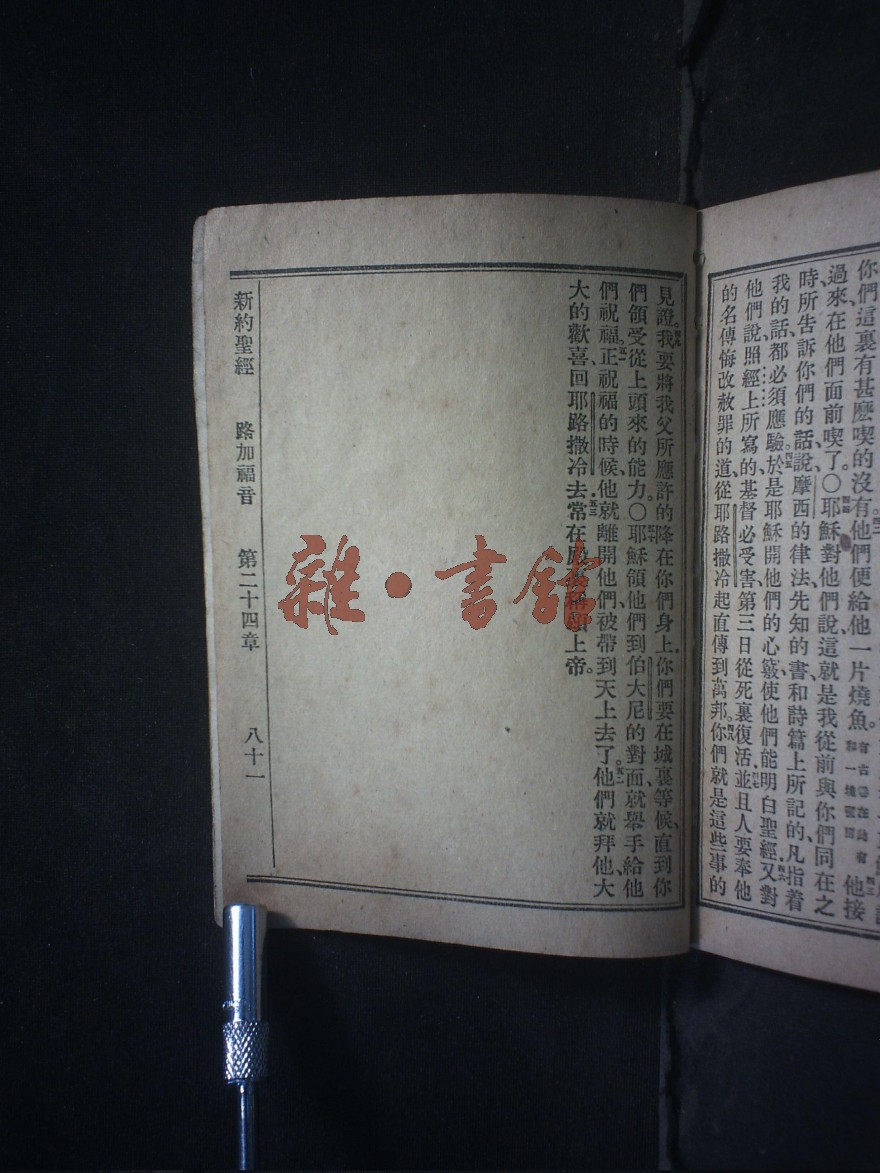 你們這裏有甚麽喫的沒有、四二他們便給他一片燒魚。有古卷在此有和一塊蜜房四三他接
過來、在他們面前喫了。○四四耶穌對他們說、這就是我從前與你們同在之
時、所告訴你們的話、說摩西的律法先知的書和詩篇上所記的、凡指着
我的話、都必須應驗。四五於是耶穌開他們的心竅、使他們能明白聖經、四六又對
他們說、照經上所寫的、基督必受害、第三日從死裏復活、四七並且人要奉他
的名傳悔改赦罪的道、從耶路撒冷起直傳到萬邦。四八你們就是這些事的
見證。四九我要將我父所應許的降在你們身上、你們要在城裏等候、直到你
們領受從上頭來的能力。○五十耶穌領他們到伯大尼的對面、就舉手給他
們祝福。五一正祝福的時候、他就離開他們、被帶到天上去了。五二他們就拜他、大
大的歡喜、回耶路撒冷去、五三常在殿裏稱頌上帝。
新約聖經 路加福音 第二十四章 八十一
雜·書館